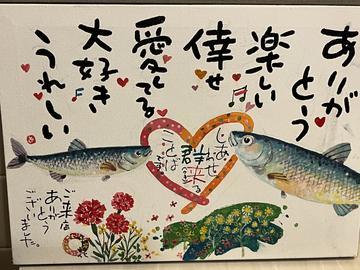 ありがとう
楽しい
倖せ
愛してる
大好き
うれしい
しあわせ
群来る
ことば
ご来店
ありがとう
ございました。